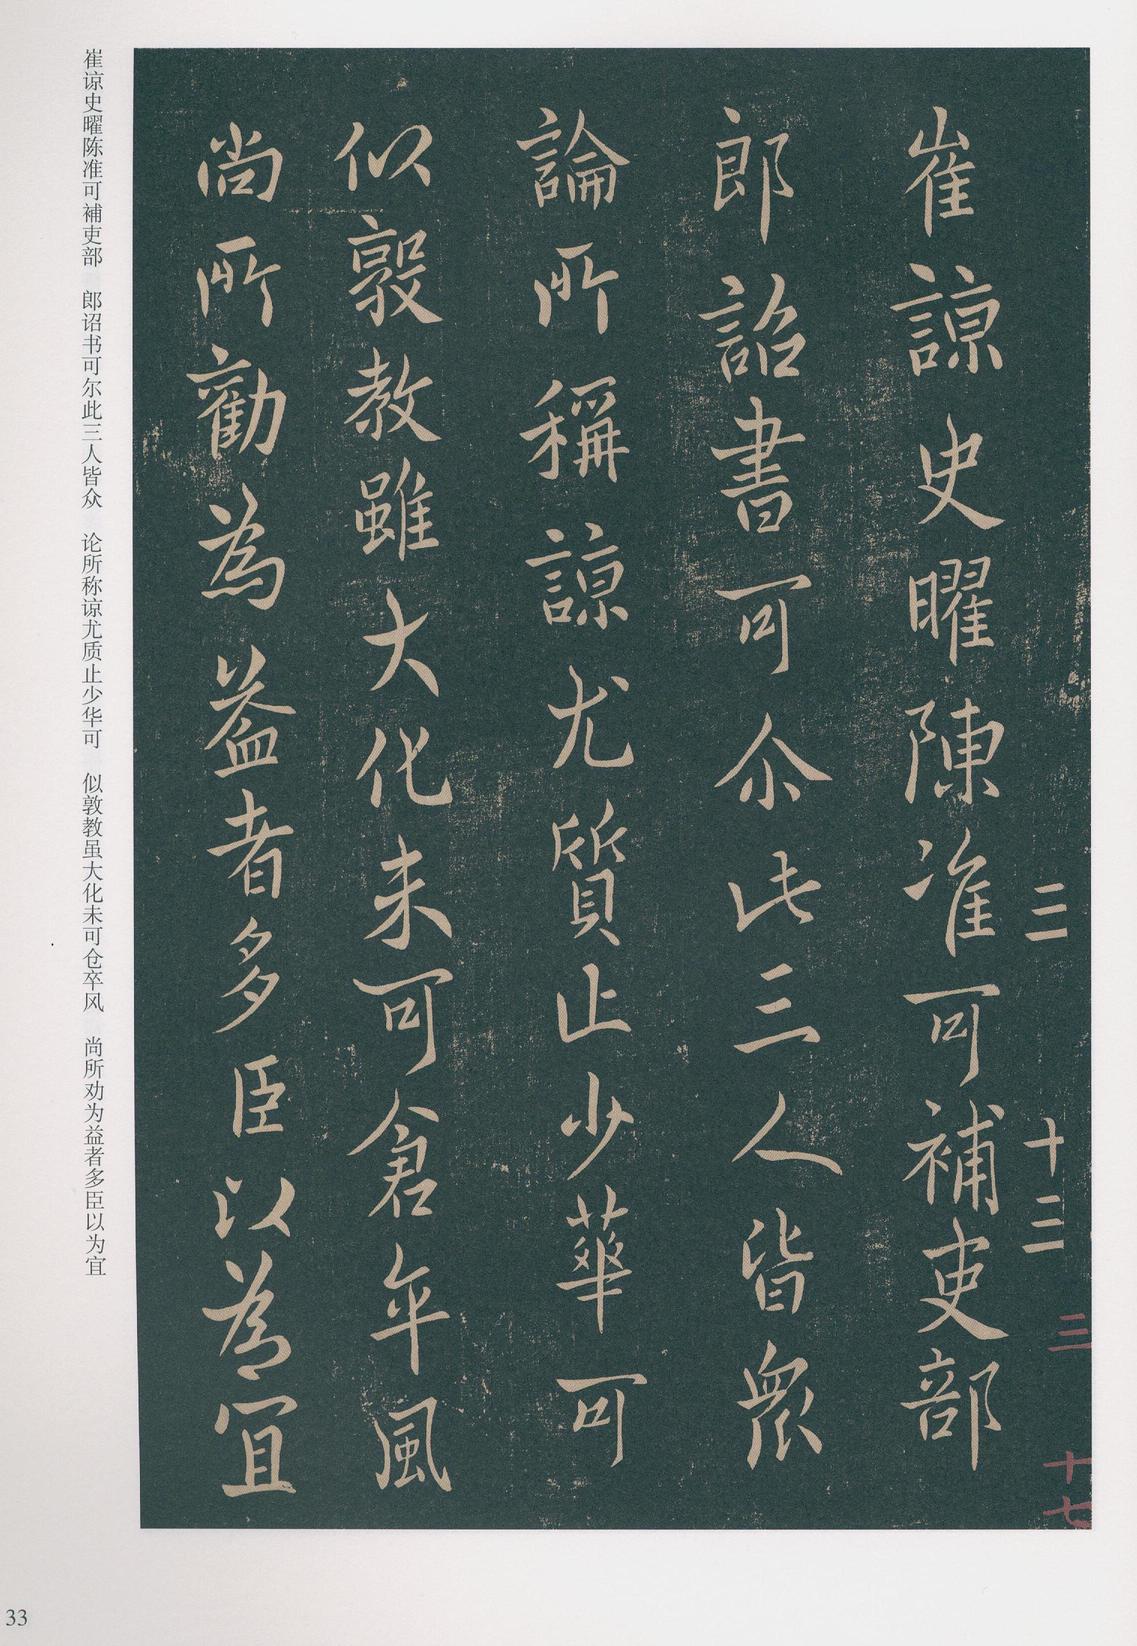 崔諒史曜陳准可補吏部
郎詔書可尒此三人皆衆
論所稱諒尤質止少華可
似敦教雖大化未可倉卒風
尚所勸為益者多臣以為宜
二二
十二二
三二
十七
崔谅史曜陈准可補吏部　郎诏书可尔此三人皆众　论所称谅尤质止少华可　似敦教虽大化未可仓卒风　尚所劝为益者多臣以为宜
33